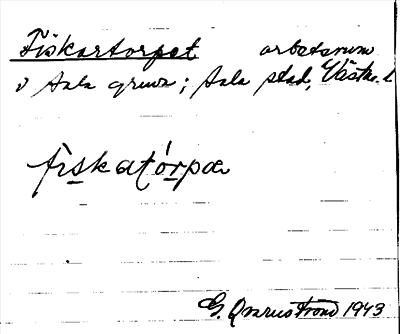 Fiskartorpet arbetsrum
i Sala gruva; Sala stad, Västm. l
fiskatórpæ
G. Qvarnström 1943